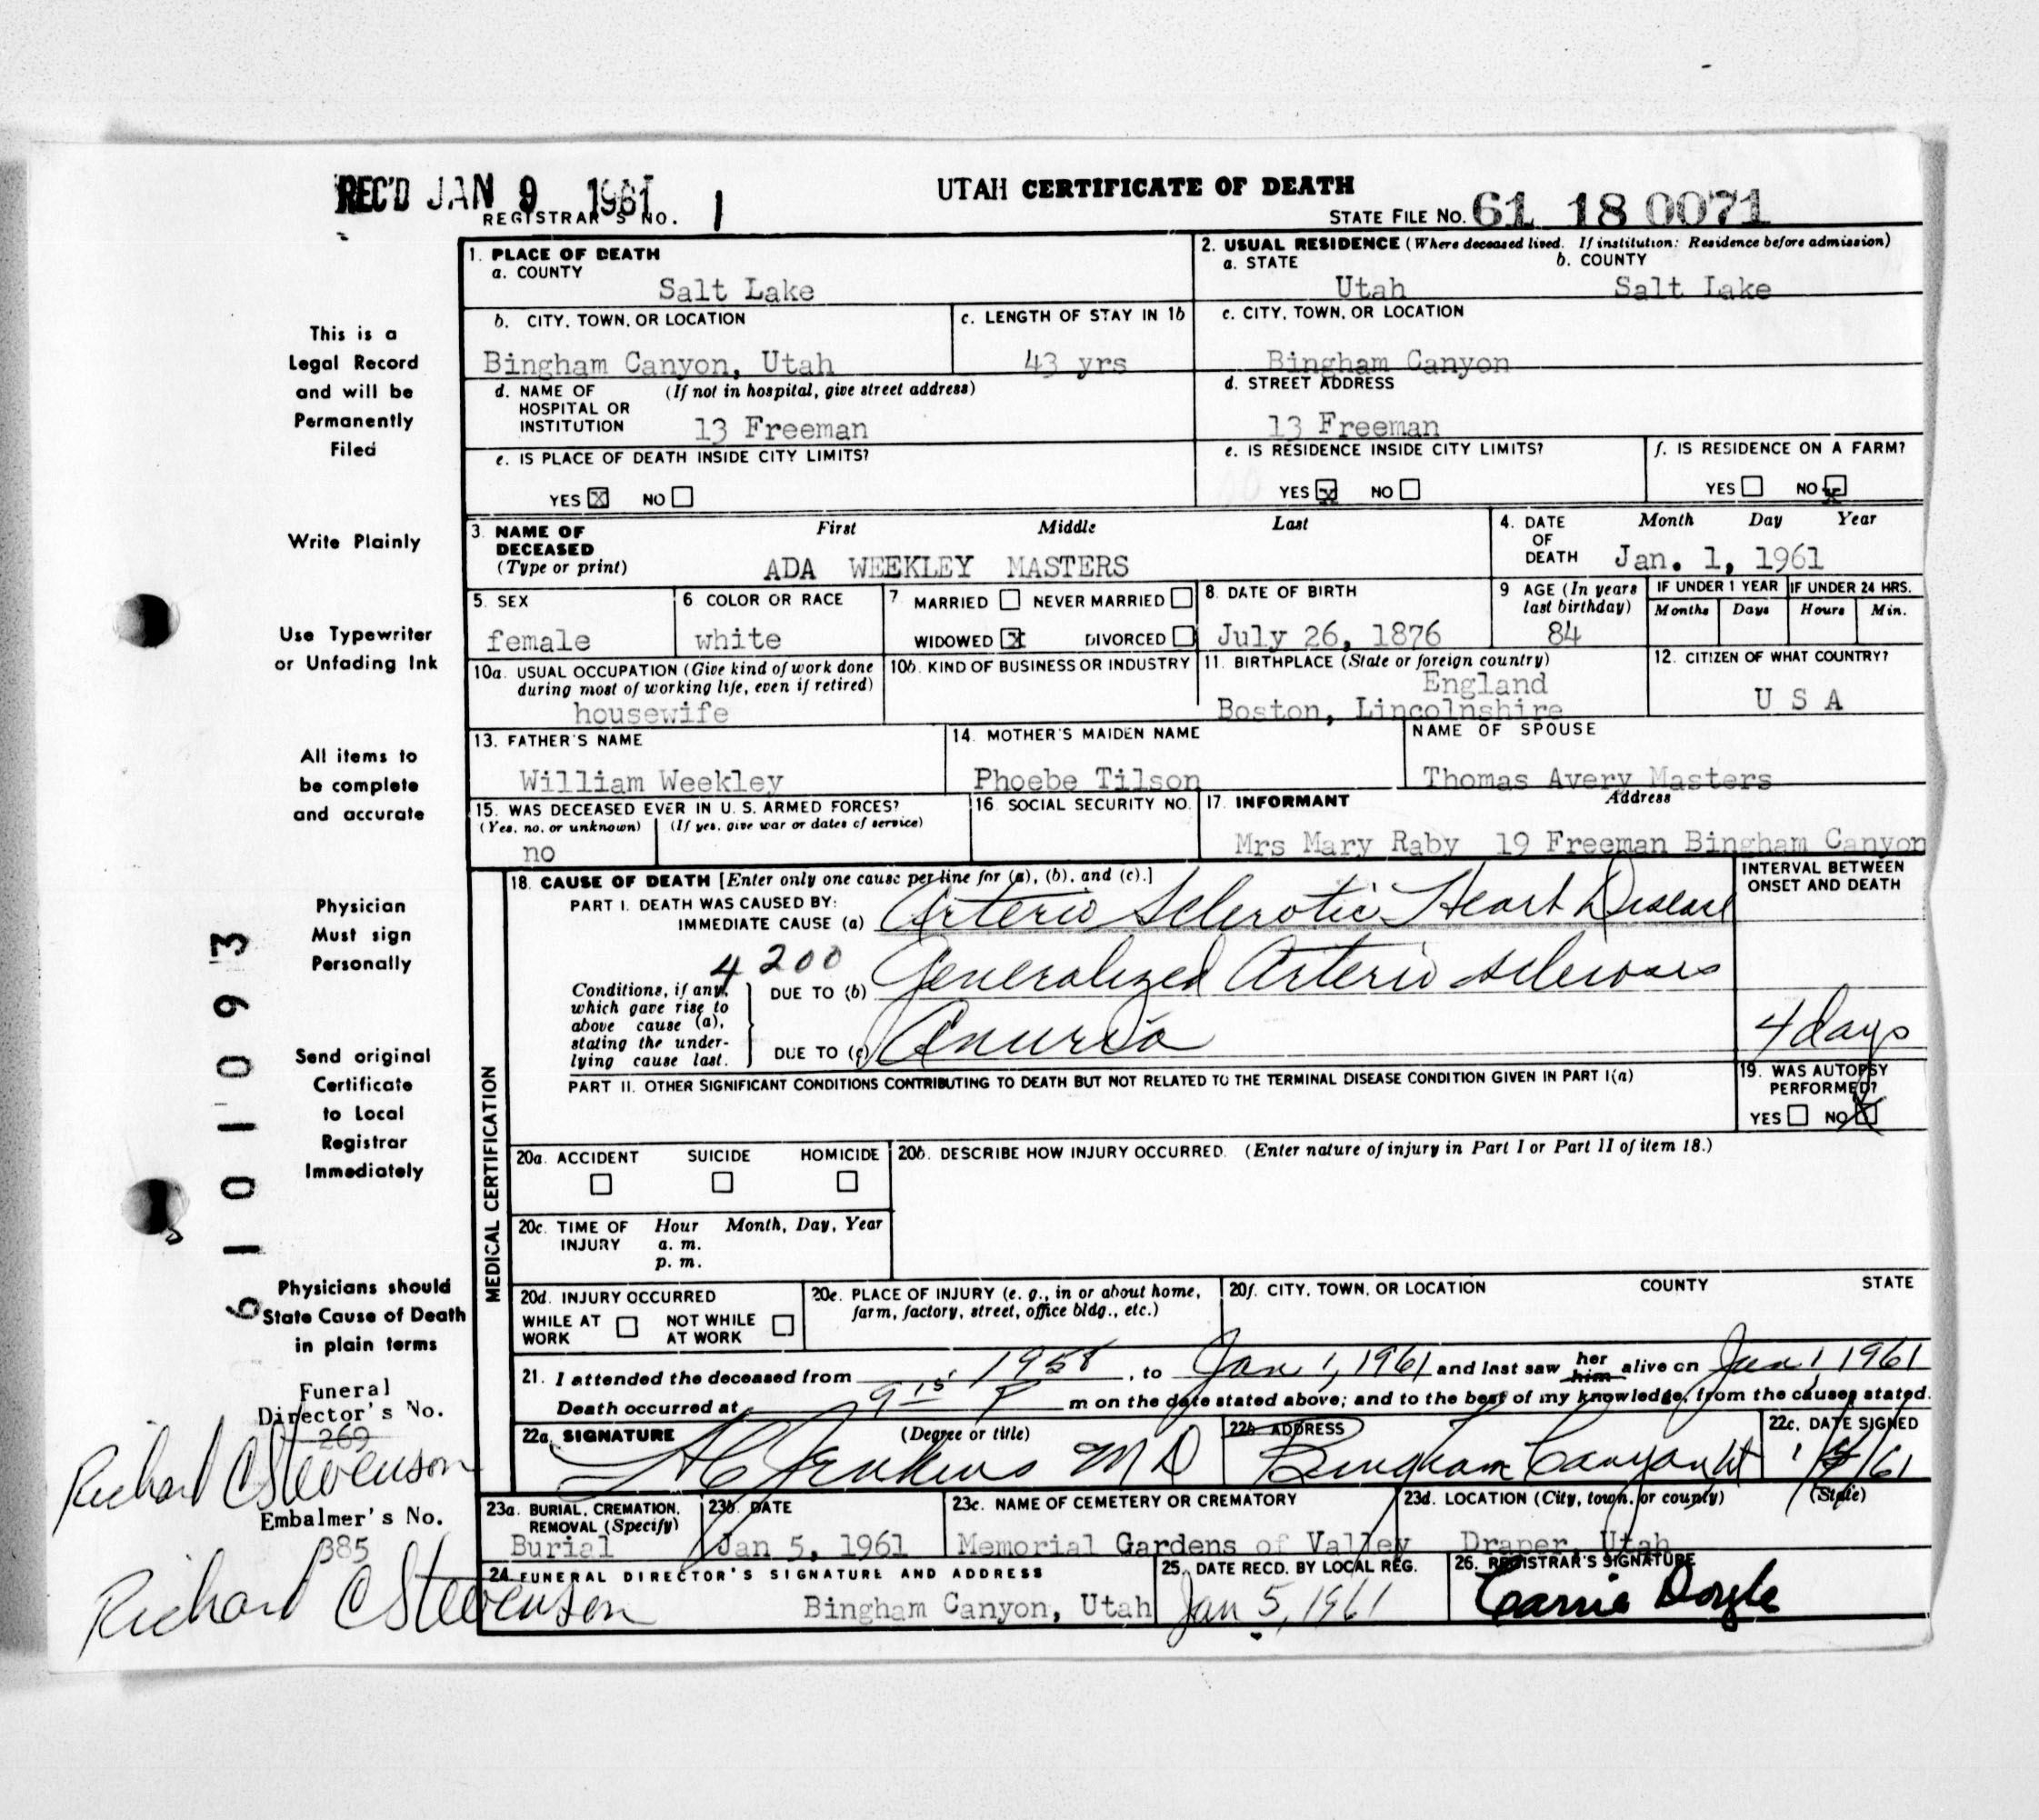 REC'D JAN 9 1961
REGISTRAR'S NO. 1
UTAH CERTIFICATE OF DEATH
STATE FILE NO. 61 18 0071
This is a
Legal Record
and will be
Permanently
Filed
Write Plainly
Use Typewriter
or Unfading Ink
All items to
be complete
and accurate
Physician
Must sign
Personally
Send original
Certificate
to Local
Registrar
Immediately
Physicians should
State Cause of Death
in plain terms
6101093
Funeral
Director's No.
269
Richard C Stevenson
Embalmer's No.
385
Richard C Stevenson
1. PLACE OF DEATH
a. COUNTY
Salt Lake
2. USUAL RESIDENCE (Where deceased lived. If institution: Residence before admission)
a. STATE b. COUNTY
Utah Salt Lake
b. CITY, TOWN, OR LOCATION
Bingham Canyon, Utah
c. LENGTH OF STAY IN 1b
43 yrs
c. CITY, TOWN, OR LOCATION
Bingham Canyon
d. NAME OF (If not in hospital, give street address)
HOSPITAL OR
INSTITUTION 13 Freeman
d. STREET ADDRESS
13 Freeman
e. IS PLACE OF DEATH INSIDE CITY LIMITS?
YES X NO
e. IS RESIDENCE INSIDE CITY LIMITS?
YES X NO
f. IS RESIDENCE ON A FARM?
YES NO X
3. NAME OF First Middle Last
DECEASED
(Type or print) ADA WEEKLEY MASTERS
4. DATE Month Day Year
OF
DEATH Jan. 1, 1961
5. SEX
female
6 COLOR OR RACE
white
7. MARRIED NEVER MARRIED
WIDOWED X DIVORCED
8. DATE OF BIRTH
July 26, 1876
9 AGE (In years
last birthday)
84
IF UNDER 1 YEAR IF UNDER 24 HRS.
Months Days Hours Min.
10a. USUAL OCCUPATION (Give kind of work done
during most of working life, even if retired)
housewife
10b. KIND OF BUSINESS OR INDUSTRY
11. BIRTHPLACE (State or foreign country)
England
Boston, Lincolnshire
12. CITIZEN OF WHAT COUNTRY?
U S A
13. FATHER'S NAME
William Weekley
14. MOTHER'S MAIDEN NAME
Phoebe Tilson
NAME OF SPOUSE
Thomas Avery Masters
15. WAS DECEASED EVER IN U. S. ARMED FORCES?
(Yes, no, or unknown) (If yes, give war or dates of service)
no
16. SOCIAL SECURITY NO.
17. INFORMANT Address
Mrs Mary Raby 19 Freeman Bingham Canyon
MEDICAL CERTIFICATION
18. CAUSE OF DEATH [Enter only one cause per line for (a), (b), and (c).]
INTERVAL BETWEEN
ONSET AND DEATH
PART I. DEATH WAS CAUSED BY:
IMMEDIATE CAUSE (a) Arterio Sclerotic Heart Disease
4200
Conditions, if any,
which gave rise to
above cause (a),
stating the under-
lying cause last.
DUE TO (b) Generalized Arterio sclerosis
DUE TO (c) Anuria 4 days
PART II. OTHER SIGNIFICANT CONDITIONS CONTRIBUTING TO DEATH BUT NOT RELATED TO THE TERMINAL DISEASE CONDITION GIVEN IN PART I(a)
19. WAS AUTOPSY
PERFORMED?
YES NO X
20a. ACCIDENT SUICIDE HOMICIDE
20b. DESCRIBE HOW INJURY OCCURRED. (Enter nature of injury in Part I or Part II of item 18.)
20c. TIME OF Hour Month, Day, Year
INJURY a. m.
p. m.
20d. INJURY OCCURRED
WHILE AT NOT WHILE
WORK AT WORK
20e. PLACE OF INJURY (e. g., in or about home,
farm, factory, street, office bldg., etc.)
20f. CITY, TOWN, OR LOCATION COUNTY STATE
21. I attended the deceased from 1958, to Jan 1, 1961 and last saw her him alive on Jan 1, 1961
Death occurred at 9 15 P m on the date stated above; and to the best of my knowledge, from the causes stated.
22a. SIGNATURE (Degree or title)
Jenkins M D
22b ADDRESS
Bingham Canyon Ut
22c. DATE SIGNED
23a. BURIAL, CREMATION,
REMOVAL (Specify)
Burial
23b. DATE
Jan 5, 1961
23c. NAME OF CEMETERY OR CREMATORY
Memorial Gardens of Valley
23d. LOCATION (City, town, or county) (State)
Draper, Utah
24. FUNERAL DIRECTOR'S SIGNATURE AND ADDRESS
Bingham Canyon, Utah
25. DATE RECD. BY LOCAL REG.
Jan 5, 1961
26. REGISTRAR'S SIGNATURE
Carrie Doyle